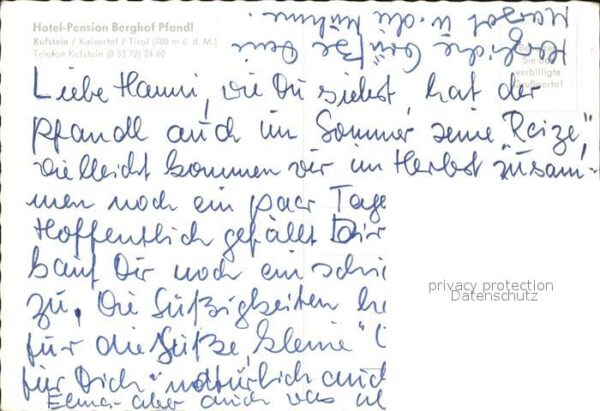 Hotel-Pension Berghof Pfandl
Kufstein / Kaisertal / Tirol (780 m ü. d. M.)
Telefon Kufstein (0 53 72) 24 60
Liebe Hanni, wie Du siehst, hat der
Pfandl auch im Sommer seine "Reize",
vielleicht kommen wir im Herbst zusam-
men noch ein paar Tage
Hoffentlich gefällt Dir
kauf Dir noch ein
zu. Die Süßigkeiten
für die "Süße, kleine"
für Dich" natürlich auch
aber auch was
Herzliche Grüße Deine
u. die
verbilligte
privacy protection
Datenschutz